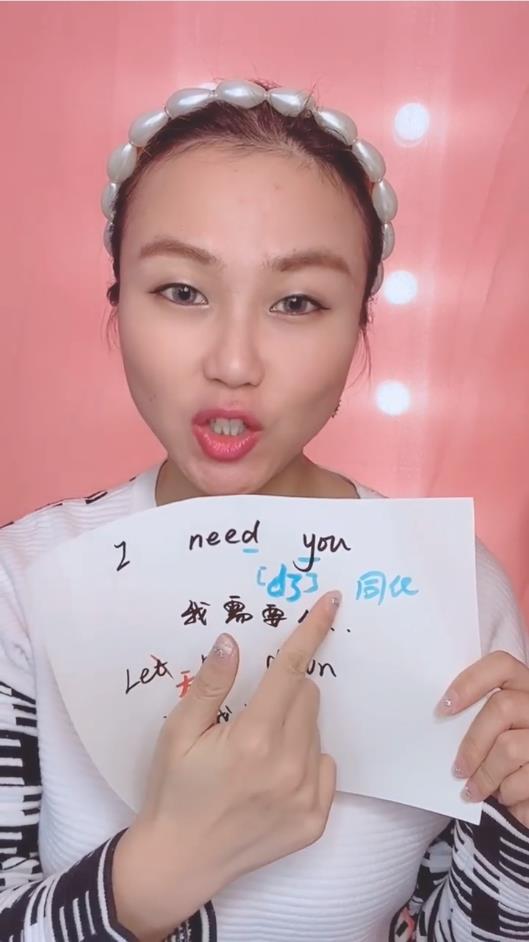 I need you
[dʒ] 同化
我需要
Let